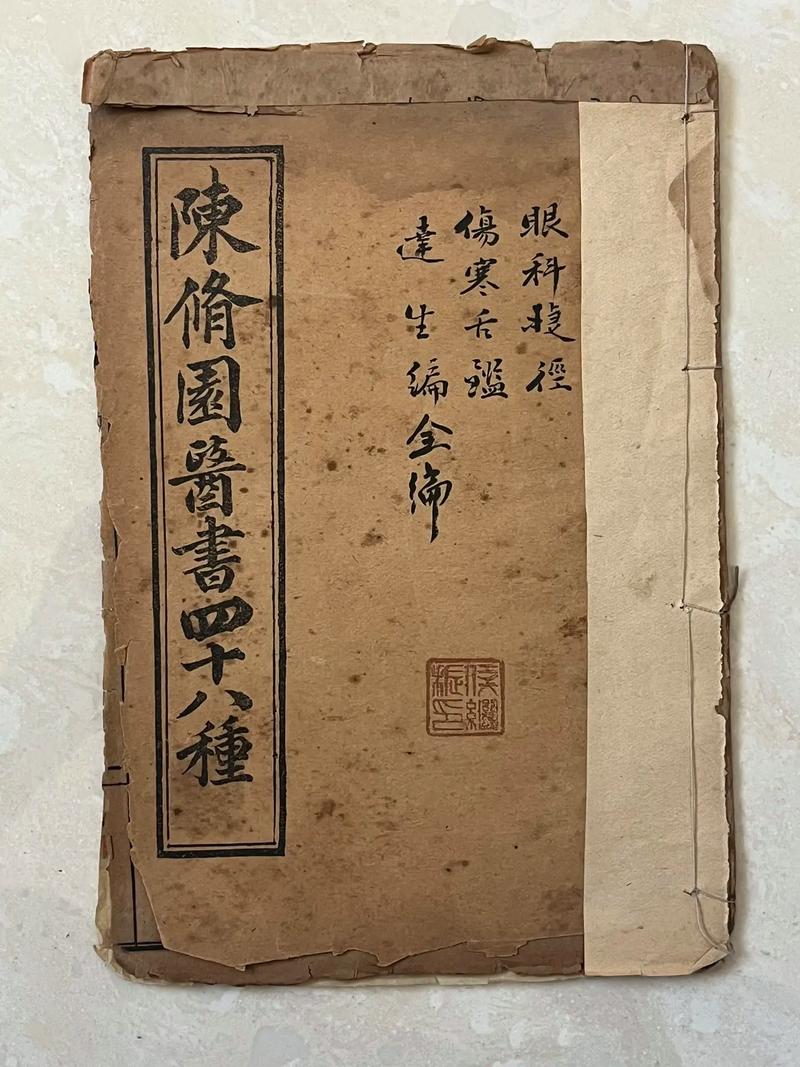 眼科捷徑
傷寒舌鑑
達生編全編
陳脩園醫書四十八種